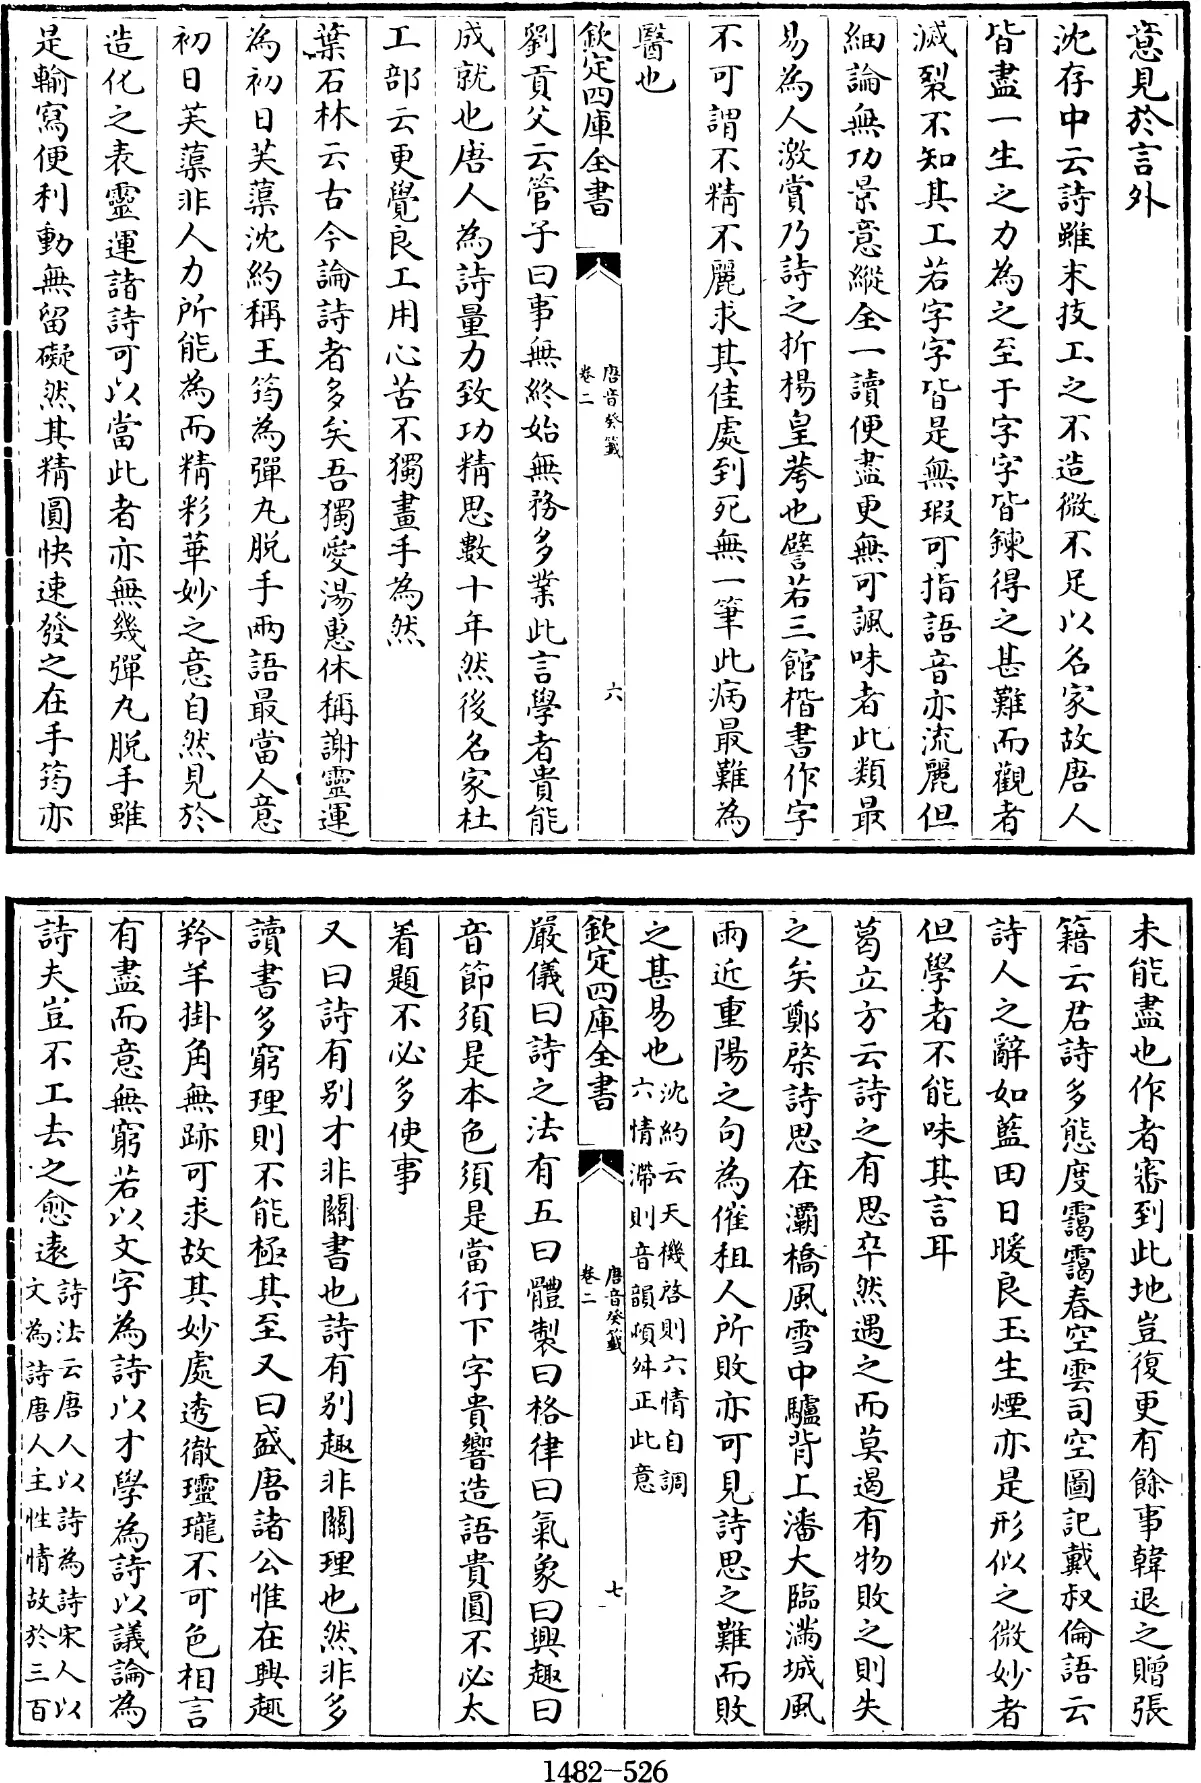 意見於言外
沈存中云詩雖末技工之不造微不足以名家故唐人
皆盡一生之力為之至于字字皆鍊得之甚難而觀者
滅裂不知其工若字字皆是無瑕可指語音亦流麗但
細論無功景意縱全一讀便盡更無可諷味者此類最
易為人激賞乃詩之折楊皇荂也譬若三館楷書作字
不可謂不精不麗求其佳處到死無一筆此病最難為
醫也
欽定四庫全書
唐音癸籤
卷二
六
劉貢父云管子曰事無終始無務多業此言學者貴能
成就也唐人為詩量力致功精思數十年然後名家杜
工部云更覺良工用心苦不獨畫手為然
葉石林云古今論詩者多矣吾獨愛湯惠休稱謝靈運
為初日芙蕖沈約稱王筠為彈丸脫手兩語最當人意
初日芙蕖非人力所能為而精彩華妙之意自然見於
造化之表靈運諸詩可以當此者亦無幾彈丸脫手雖
是輸寫便利動無留礙然其精圓快速發之在手筠亦
未能盡也作者審到此地豈復更有餘事韓退之贈張
籍云君詩多態度靄靄春空雲司空圖記戴叔倫語云
詩人之辭如藍田日暖良玉生煙亦是形似之微妙者
但學者不能味其言耳
葛立方云詩之有思卒然遇之而莫遏有物敗之則失
之矣鄭棨詩思在灞橋風雪中驢背上潘大臨滿城風
雨近重陽之句為催租人所敗亦可見詩思之難而敗
之甚易也沈約云天機啓則六情自調
六情滯則音韻頓舛正此意
欽定四庫全書
唐音癸籤
卷二
七
嚴儀曰詩之法有五曰體製曰格律曰氣象曰興趣曰
音節須是本色須是當行下字貴響造語貴圓不必太
着題不必多使事
又曰詩有別才非關書也詩有別趣非關理也然非多
讀書多窮理則不能極其至又曰盛唐諸公惟在興趣
羚羊掛角無跡可求故其妙處透徹瓏瓏不可色相言
有盡而意無窮若以文字為詩以才學為詩以議論為
詩夫豈不工去之愈遠詩法云唐人以詩為詩宋人以
文為詩唐人主性情故於三百
1482-526